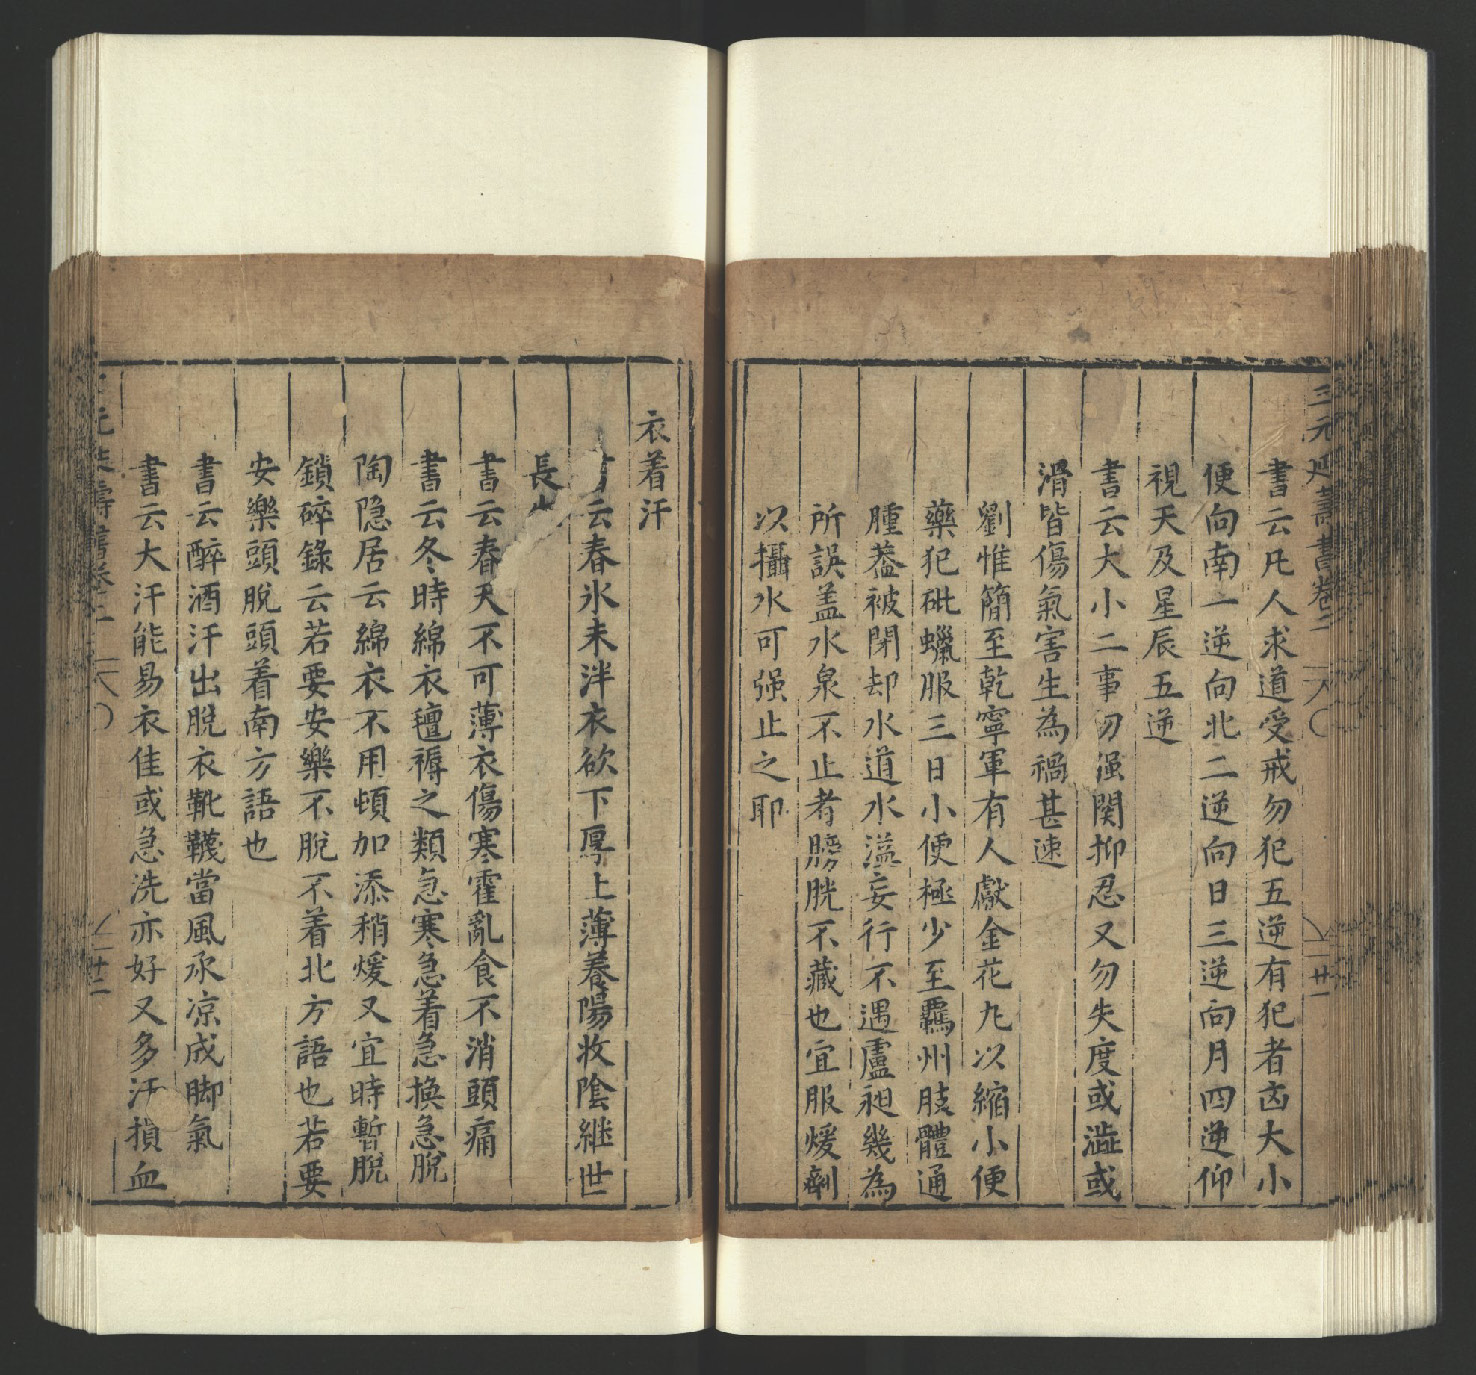 三元延壽書卷二
書云凡人求道受戒勿犯五逆有犯者凶大小
便向南一逆向北二逆向日三逆向月四逆仰
視天及星辰五逆
書云大小二事勿强関抑忍又勿失度或澁或
滑皆傷氣害生為禍甚速
劉惟簡至乾寧軍有人獻金花丸以縮小便
藥犯砒蠟服三日小便極少至覊州肢體通
腫葢被閉却水道水溢妄行不遇盧昶幾為
所誤盖水泉不止者膀胱不藏也宜服煖劑
以攝水可强止之耶
衣着汗
云春氷未泮衣欲下厚上薄養陽收陰继世
長
書云春天不可薄衣傷寒霍亂食不消頭痛
書云冬時綿衣氊褥之類急寒急着急換急脫
陶隐居云綿衣不用頓加添稍煖又宜時暫脫
鎖碎錄云若要安樂不脫不着北方語也若要
安樂頭脫頭着南方語也
書云醉酒汗出脫衣靴襪當風永凉成脚氣
書云大汗能易衣佳或急洗亦好又多汗損血